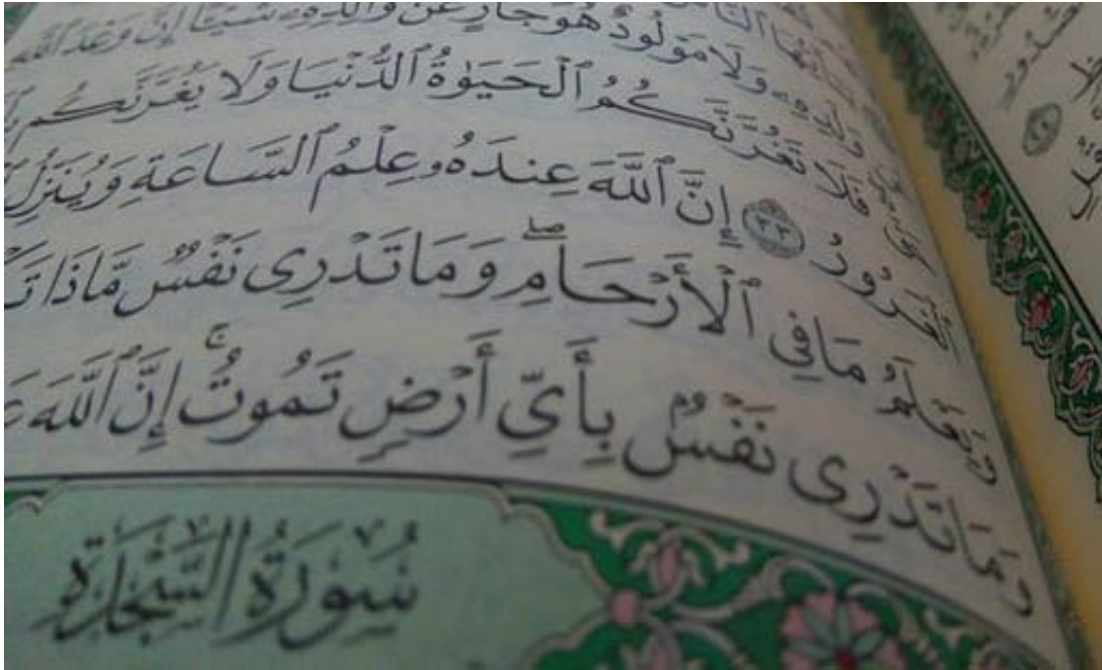 وَلَا مَوْلُودٌ هُوَ جَازٍ عَن وَالِدِهِۦ شَيْـًٔا إِنَّ وَعْدَ ٱللَّهِ
فَلَا تَغُرَّنَّكُمُ ٱلْحَيَوٰةُ ٱلدُّنْيَا وَلَا يَغُرَّنَّكُم
ٱلْغَرُورُ ٣٣ إِنَّ ٱللَّهَ عِندَهُۥ عِلْمُ ٱلسَّاعَةِ وَيُنَزِّلُ
وَيَعْلَمُ مَا فِى ٱلْأَرْحَامِۖ وَمَا تَدْرِى نَفْسٌ مَّاذَا
وَمَا تَدْرِى نَفْسٌۢ بِأَىِّ أَرْضٍ تَمُوتُۚ إِنَّ ٱللَّهَ
سُورَةُ السَّجْدَةِ